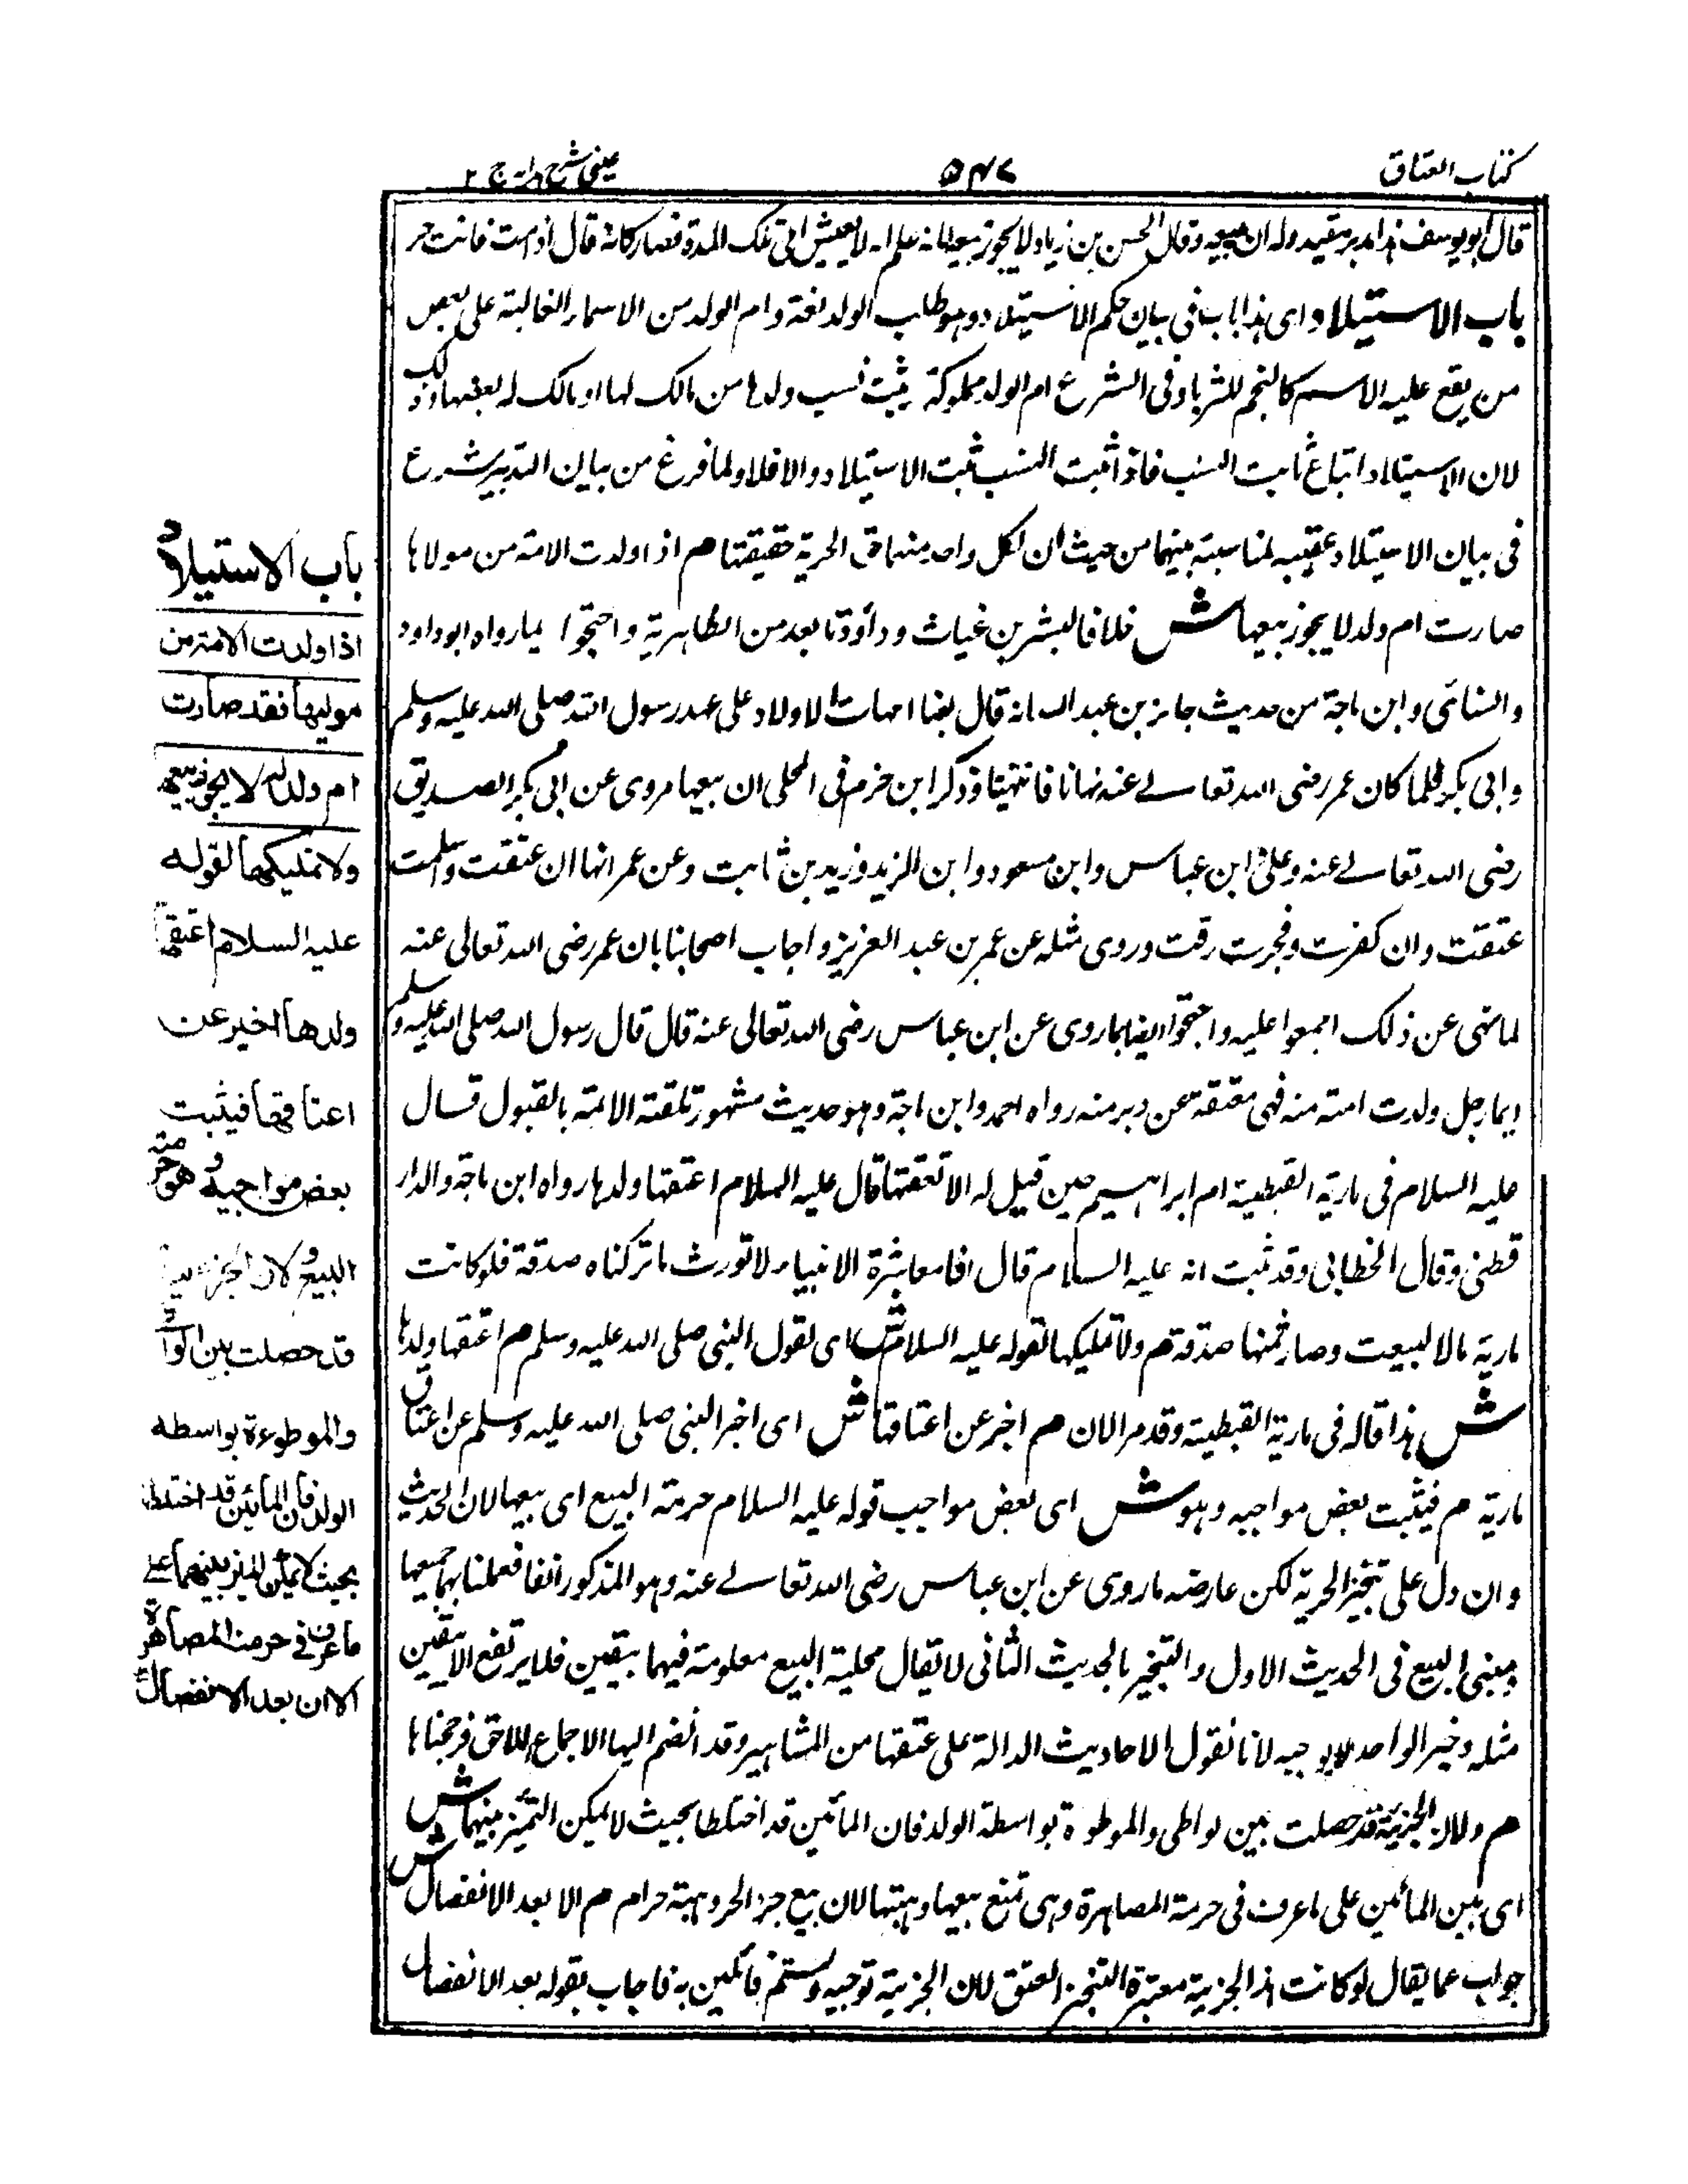 كتاب العتاق
٥٤٧
عينى شرح هداية ج ٢
قال ابو يوسف هذا مدبر مقيد وله ان يبيعه وقال الحسن بن زياد لا يجوز بيعه لانه علم انه لا يعيش الى تلك المدة فصار كانه قال اذا مت فانت حر
باب الاستيلاد اى هذا باب فى بيان حكم الاستيلاد وهو طلب الولد لغة وام الولد من الاسماء الغالبة على بعض
من يقع عليه الاسم كالنجم للثريا وفى الشرع ام الولد مملوكة يثبت نسب ولدها من مالك لها او مالك له بعضها وذلك
لان الاستيلاد اتباع ثابت النسب فاذا ثبت النسب ثبت الاستيلاد والا فلا ولما فرغ من بيان التدبير شرع
فى بيان الاستيلاد عقيبه لمناسبة بينهما من حيث ان لكل واحد منهما حق الحرية حقيقتها م اذا ولدت الامة من مولاها
صارت ام ولد لا يجوز بيعها ش خلافا لبشر بن غياث وداؤد تابعه من الظاهرية واحتجوا بما رواه ابو داود
والنسائى وابن ماجة من حديث جابر بن عبد الله انه قال بعنا امهات الاولاد على عهد رسول الله صلى الله عليه وسلم
وابى بكر فلما كان عمر رضى الله تعالى عنه نهانا فانتهينا وذكر ابن حزم فى المحلى ان بيعها مروى عن ابى بكر الصديق
رضى الله تعالى عنه وعلى وابن عباس وابن مسعود وابن الزبير وزيد بن ثابت وعن عمر انها ان عتقت واسلمت
عتقت وان كفرت وفجرت رقت وروى مثله عن عمر بن عبد العزيز واجاب اصحابنا بان عمر رضى الله تعالى عنه
لما نهى عن ذلك اجمعوا عليه واحتجوا ايضا بما روى عن ابن عباس رضى الله تعالى عنه قال قال رسول الله صلى الله عليه وسلم
ايما رجل ولدت امته منه فهى معتقة عن دبر منه رواه احمد وابن ماجة وهو حديث مشهور تلقته الائمة بالقبول قال
عليه السلام فى مارية القبطية ام ابراهيم حين قيل له الا تعتقها قال عليه السلام اعتقها ولدها رواه ابن ماجة والدار
قطنى وقال الخطابى وقد ثبت انه عليه السلام قال انا معاشرة الانبياء لا نورث ما تركناه صدقة فلو كانت
مارية مالا لبيعت وصار ثمنها صدقة م ولا تمليكها لقوله عليه السلام ش اى لقول النبى صلى الله عليه وسلم م اعتقها ولدها
ش هذا قاله فى مارية القبطية وقد مر الان م اخبر عن اعتاقها ش اى اخبر النبى صلى الله عليه وسلم عن اعتاق
مارية م فيثبت بعض مواجبه وهو ش اى بعض مواجب قوله عليه السلام حرمة البيع اى بيعها لان الحديث
وان دل على تنجيز الحرية لكن عارضه ما روى عن ابن عباس رضى الله تعالى عنه وهو المذكور انفا فعملنا بهما جميعا
ومبنى البيع فى الحديث الاول والتنجيز بالحديث الثانى لا يقال محلية البيع معلومة فيها بيقين فلا يرتفع الا بيقين
مثله وخبر الواحد لا يوجبه لانا نقول الاحاديث الدالة على عتقها من المشاهير وقد انضم اليها الاجماع اللاحق فرجحناها
م ولان الجزئية قد حصلت بين الواطى والموطوءة بواسطة الولد فان المائين قد اختلطا بحيث لا يمكن التميز بينهما ش
اى بين المائين على ما عرف فى حرمة المصاهرة وهى تمنع بيعها وهبتها لان بيع جزء الحر وهبته حرام م الا بعد الانفصال ش
جواب عما يقال لو كانت هذه الجزئية معتبرة لتنجز العتق لان الجزئية توجبه ولستم قائلين به فاجاب بقوله بعد الانفصال
باب الاستيلاد
اذا ولدت الامة من
موليها فقد صارت
ام ولد له لا يجوز بيعها
ولا تمليكها لقوله
عليه السلام اعتقها
ولدها اخبر عن
اعتاقها فيثبت
بعض مواجبه وهو حرمة
البيع ولان الجزئية
قد حصلت بين الواطى
والموطوءة بواسطه
الولد فان المائين قد اختلطا
بحيث لا يمكن الميز بينهما على
ما عرف فى حرمة المصاهرة
الا ان بعد الانفصال